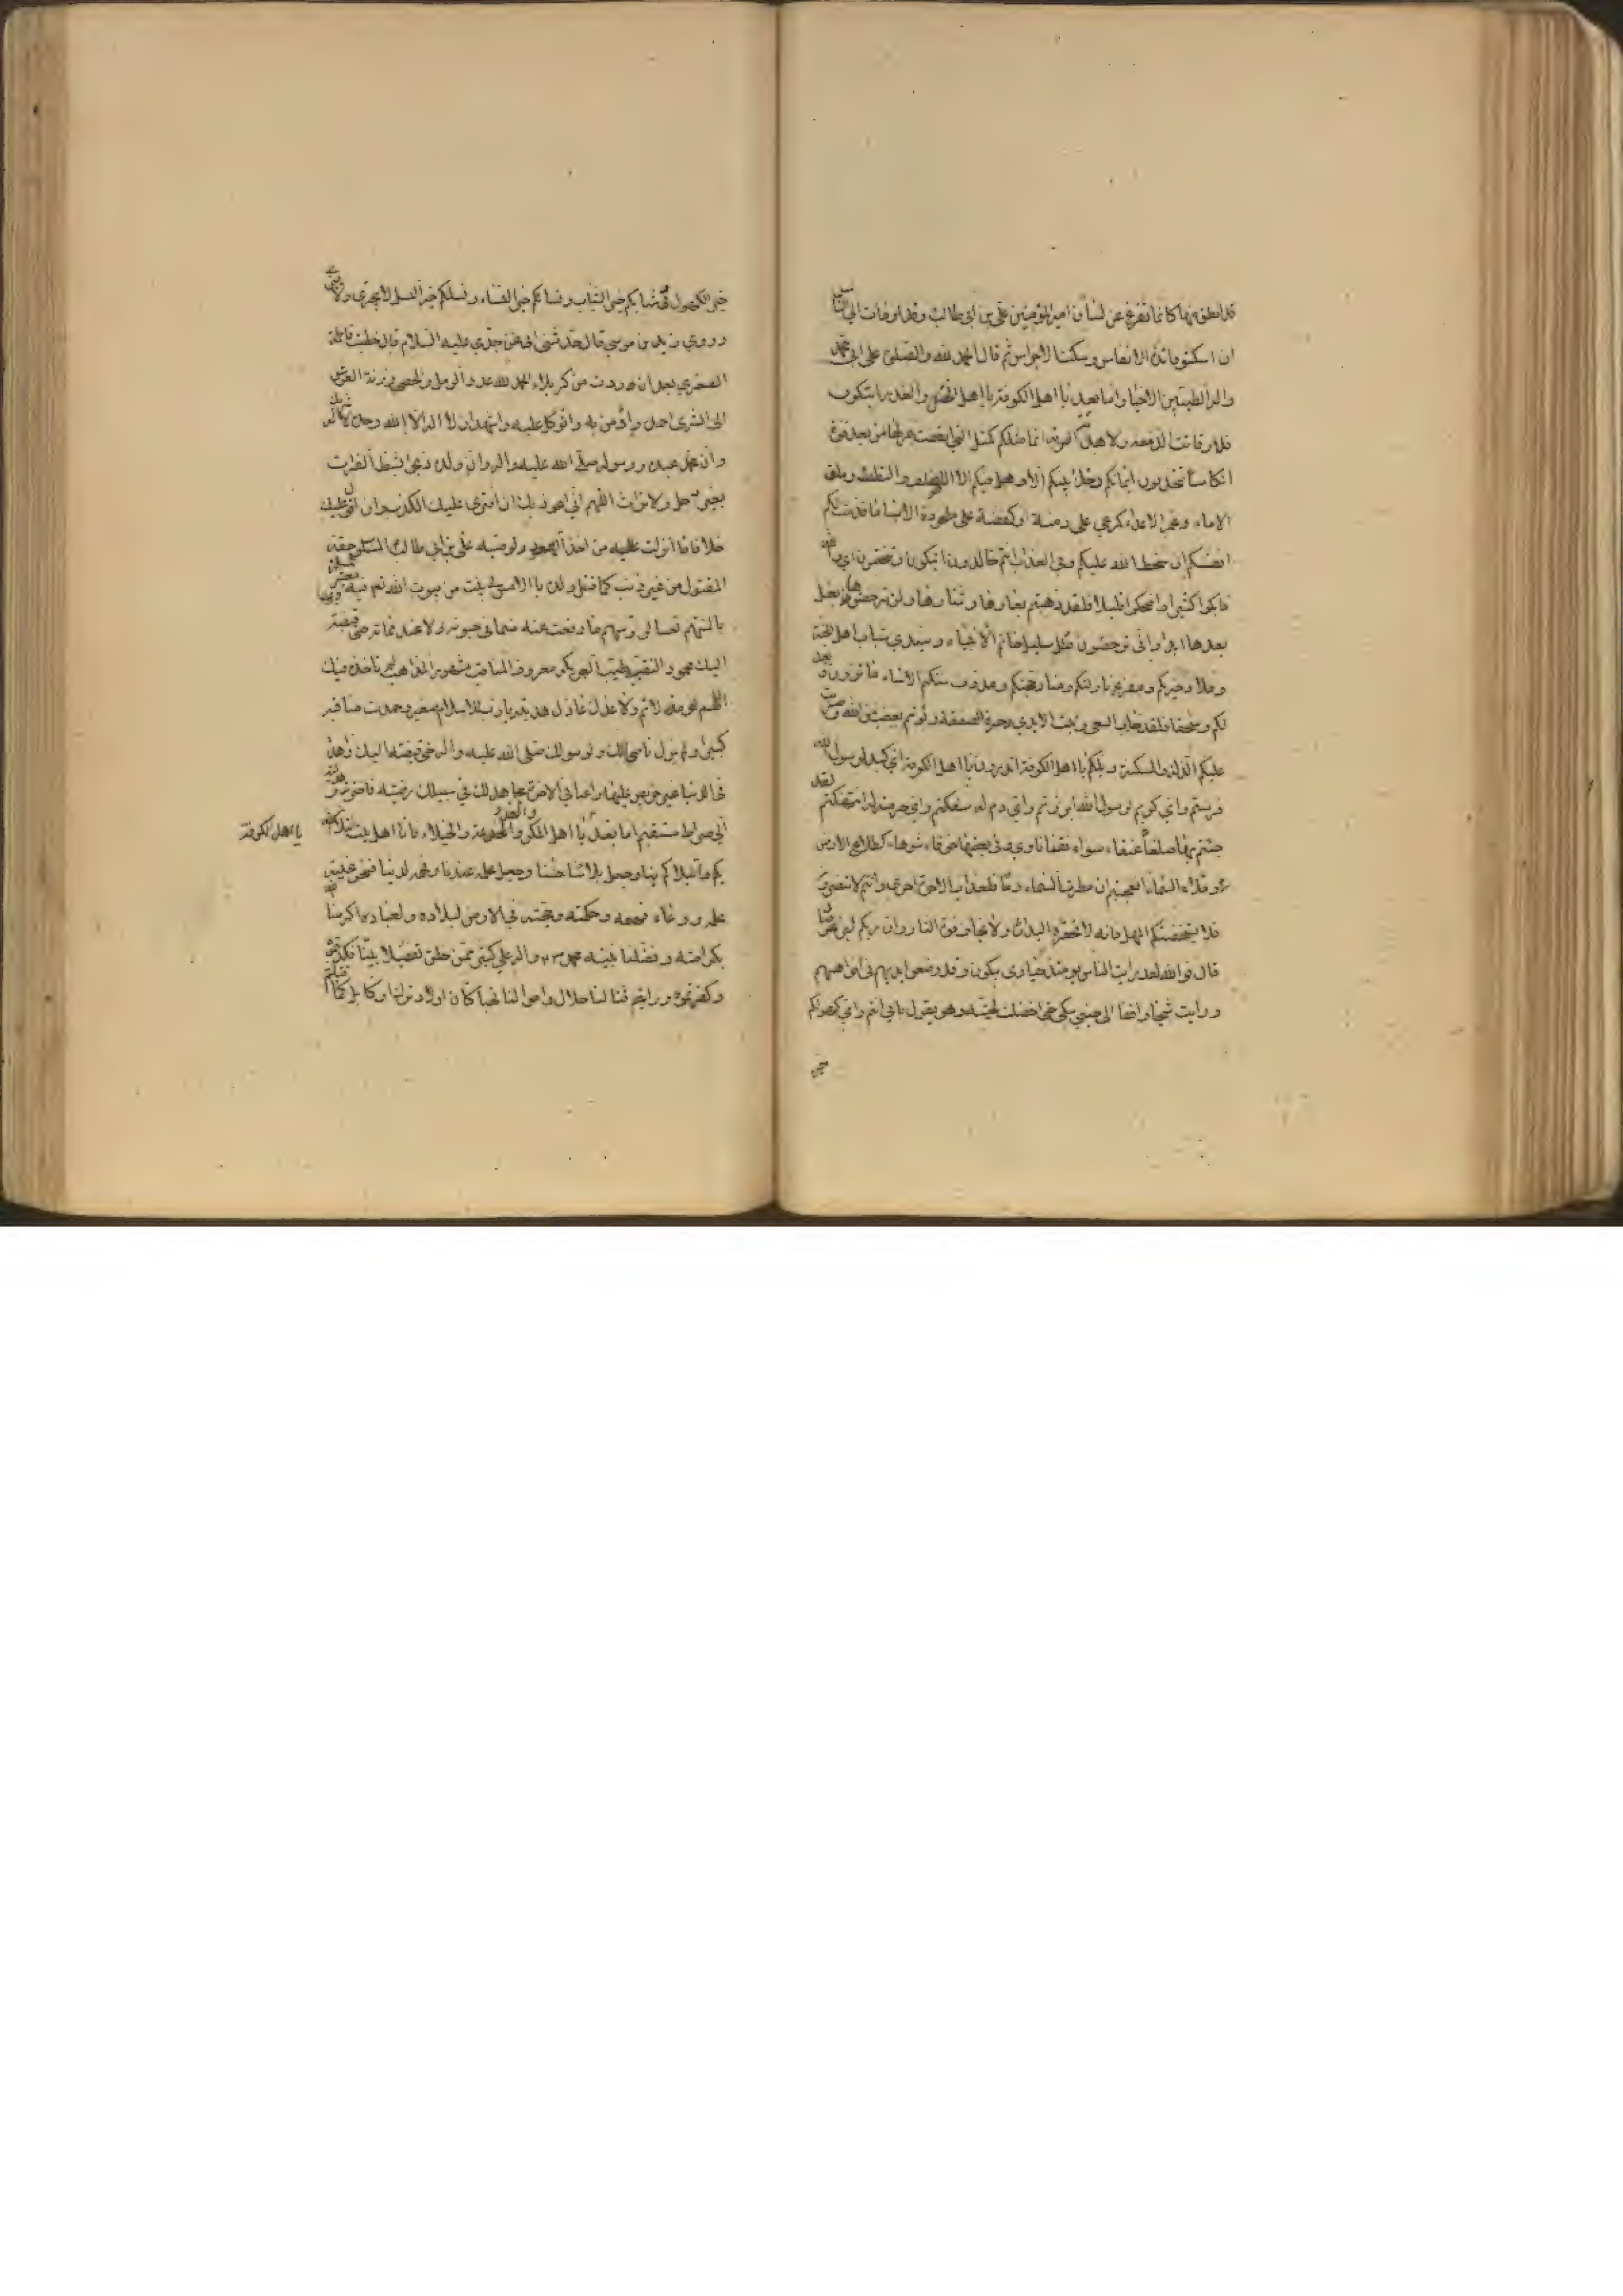 قد انطق منها كانما تفرغ عن لسان امير المؤمنين علي بن ابي طالب وقد اومات الى الناس
ان اسكتوا فارتدت الانفاس وسكنت الاجراس ثم قالت الحمد لله والصلوة على ابي محمد
واله الطيبين الاخيار اما بعد يا اهل الكوفة يا اهل الختل والغدر اتبكون
فلا رقات الدمعة ولا هدات الرنة انما مثلكم كمثل التي نقضت غزلها من بعد قوة
انكاثا تتخذون ايمانكم دخلا بينكم الا وهل فيكم الا الصلف و النطف وملق
الاماء وغمز الاعداء كمرعى على دمنة او كفضة على ملحودة الا ساء ما قدمت لكم
انفسكم ان سخط الله عليكم وفي العذاب انتم خالدون اتبكون وتنتحبون اي والله
فابكوا كثيرا واضحكوا قليلا فلقد ذهبتم بعارها وشنارها ولن ترحضوها بغسل
بعدها ابدا وانى ترحضون قتل سليل خاتم الانبياء وسيدي شباب اهل الجنة
وملاذ خيرتكم ومفزع نازلتكم ومنار حجتكم ومدره سنتكم الا ساء ما تزرون وبعدا
لكم وسحقا فلقد خاب السعي وتبت الايدي وخسرة الصفقة وبؤتم بغضب من الله وضربت
عليكم الذلة والمسكنة ويلكم يا اهل الكوفة اتدرون يا اهل الكوفة اي كبد لرسول الله
فريتم واي كريم لرسول الله ابرزتم واي دم له سفكتم واي حرمة له انتهكتم لقد
جئتم بها صلعاء عنقاء سواء نقماء ناوي وفي بعضها خرقاء شوهاء كطلاع الارض
وملاء السماء افعجبتم ان مطرت السماء دما فلعذاب الاخرة اخزى وانتم لا تنصرون
فلا يستخفنكم المهل فانه لا تحفزه البدار ولا يخاف فوة الثار وان ربكم لبالمرصاد
قال فوالله لقد رايت الناس يومئذ حيارى يبكون وقد وضعوا ايديهم في افواههم
ورايت شيخا واقفا الى جنبي يبكي حتى اخضلت لحيته وهو يقول بابي انتم وامي كهولكم
خير
خير الكهول وشبابكم خير الشباب ونساءكم خير النساء ونسلكم خير النسل لا يخزى ولا يبزى
وروي زيد بن موسى قال حدثني ابي عن جدي عليه السلام قال خطبت فاطمة
الصغري بعد ان وردت من كربلاء الحمد لله عدد الرمل والحصى وزنة العرش
الى الثرى احمده واؤمن به واتوكل عليه واشهد ان لا اله الا الله وحده لا شريك له
وان محمدا عبده ورسوله صلى الله عليه واله وان ولده ذبح بشط الفرات
بغير ذحل ولا ترات اللهم اني اعوذ بك ان افتري عليك الكذب وان اقول عليك
خلاف ما انزلت عليه من اخذ العهود لوصيه علي بن ابي طالب المسلوب حقه
المقتول من غير ذنب كما قتل ولده بالامس في بيت من بيوت الله تعالى فيه معشر مسلمة
بالسنتهم تعسا لرؤسهم ما دفعت عنه ضيما في حيوته ولا عند مماته حتى قبضته
اليك محمود النقيبة طيب العريكة معروف المناقب مشهور المذاهب لم تاخذه فيك
اللهم لومة لائم ولا عذل عاذل هديته يا رب للاسلام صغيرا وحمدت مناقبه
كبيرا ولم يزل ناصحا لك ولرسولك صلى الله عليه واله حتى قبضته اليك زاهدا
في الدنيا غير حريص عليها راغبا في الاخرة مجاهدا لك في سبيلك رضيته فاخترته وهديته
الى صراط مستقيم اما بعد يا اهل المكر والغدر والخيلاء فانا اهل بيت ابتلانا الله
يا اهل الكوفة
بكم وابتلاكم بنا وجعل بلاءنا حسنا وجعل علمه عندنا وفهمه لدينا فنحن عيبة
علمه ووعاء فهمه وحكمته وحجته في الارض لبلاده ولعباده اكرمنا الله
بكرامته وفضلنا بنبيه محمد ص واله على كثير ممن خلق تفضيلا بينا فكذبتمونا
وكفرتمونا ورايتم قتالنا حلالا واموالنا نهبا كان اولاد ترك او كابل كما قتلتم